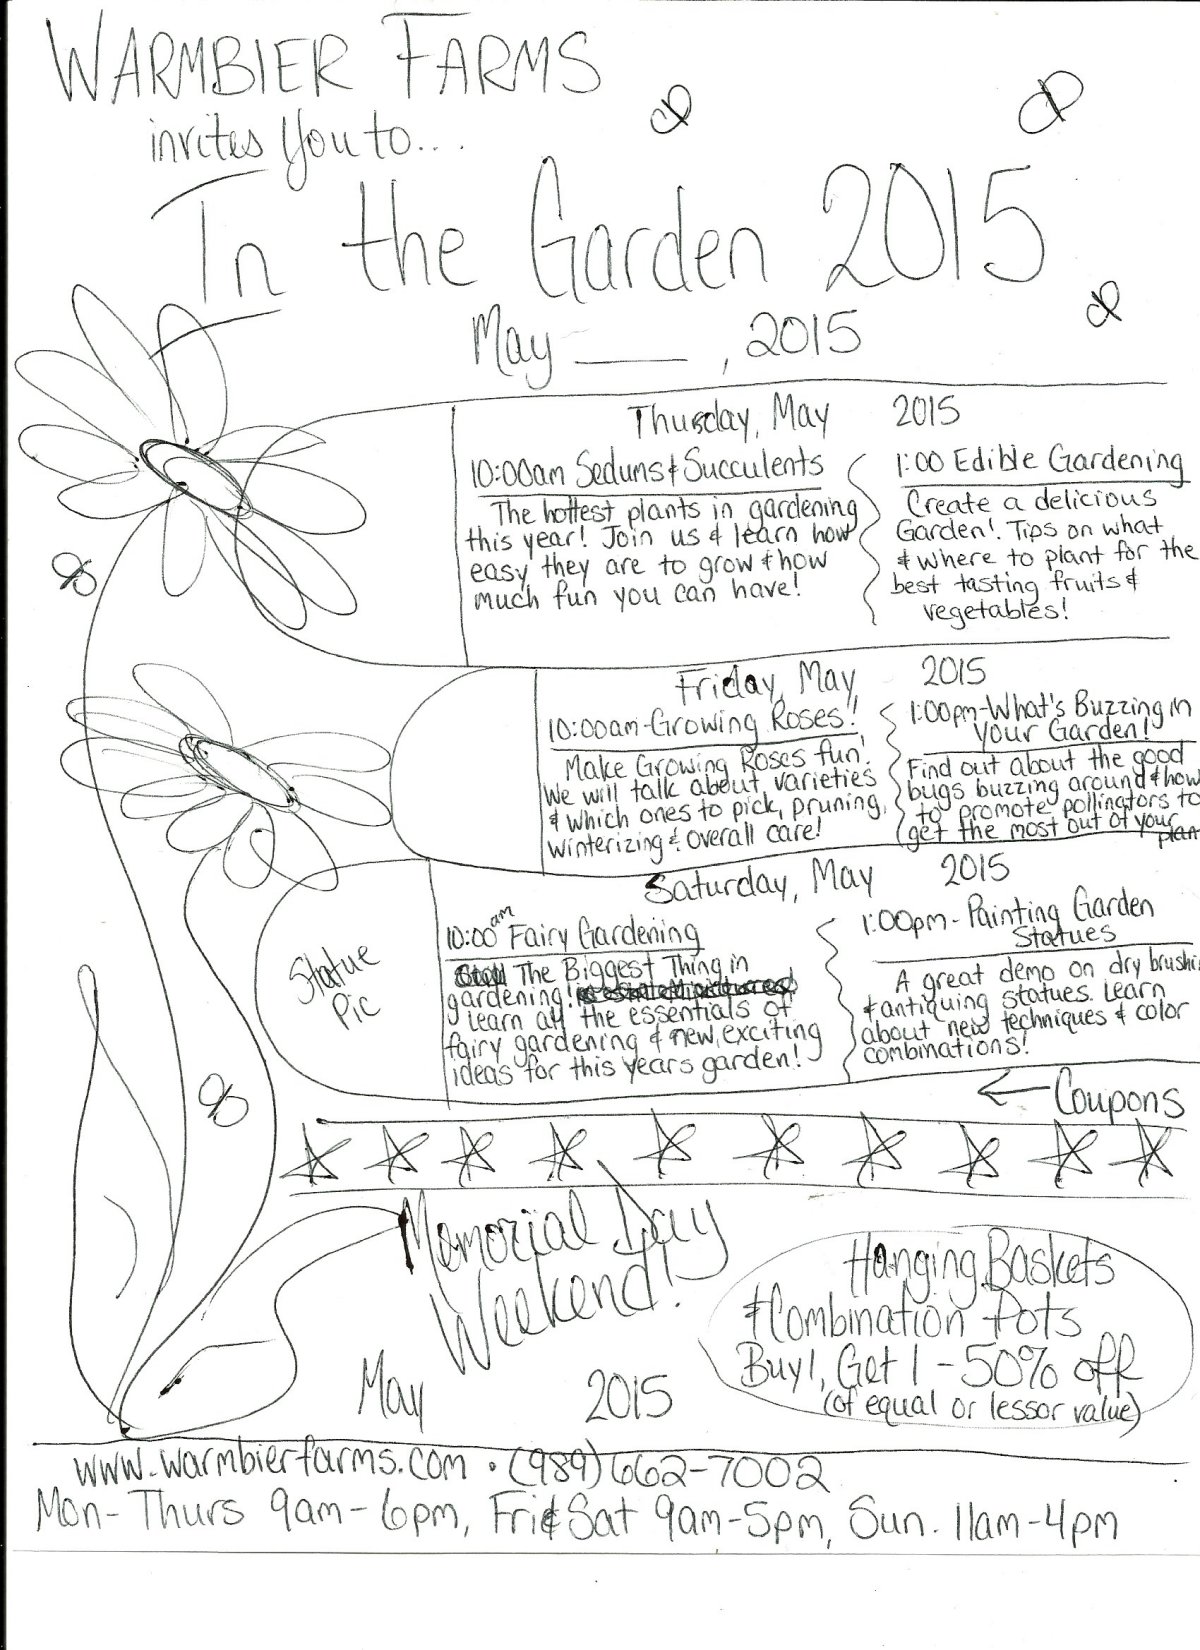 WARMBIER FARMS
invites You to...
In the Garden 2015
May ____, 2015
Thursday, May 2015
10:00am Sedums & Succulents
The hottest plants in gardening
this year! Join us & learn how
easy they are to grow & how
much fun you can have!
1:00 Edible Gardening
Create a delicious
Garden! Tips on what
& where to plant for the
best tasting fruits &
vegetables!
Friday, May 2015
10:00am-Growing Roses!
Make Growing Roses fun!
We will talk about varieties
& which ones to pick, pruning,
winterizing & overall care!
1:00pm-What's Buzzing in
Your Garden!
Find out about the good
bugs buzzing around & how
to promote pollinators to
get the most out of your
plan
Saturday, May 2015
Statue
Pic
10:00am Fairy Gardening
The Biggest Thing in
gardening!
Learn all the essentials of
fairy gardening & new, exciting
ideas for this years garden!
1:00pm-Painting Garden
Statues
A great demo on dry brushi
& antiquing statues. Learn
about new techniques & color
combinations!
← Coupons
Memorial Day
Weekend!
May 2015
Hanging Baskets
& Combination Pots
Buy 1, Get 1 - 50% off
(of equal or lessor value)
www.warmbierfarms.com • (989) 662-7002
Mon-Thurs 9am-6pm, Fri & Sat 9am-5pm, Sun. 11am-4pm